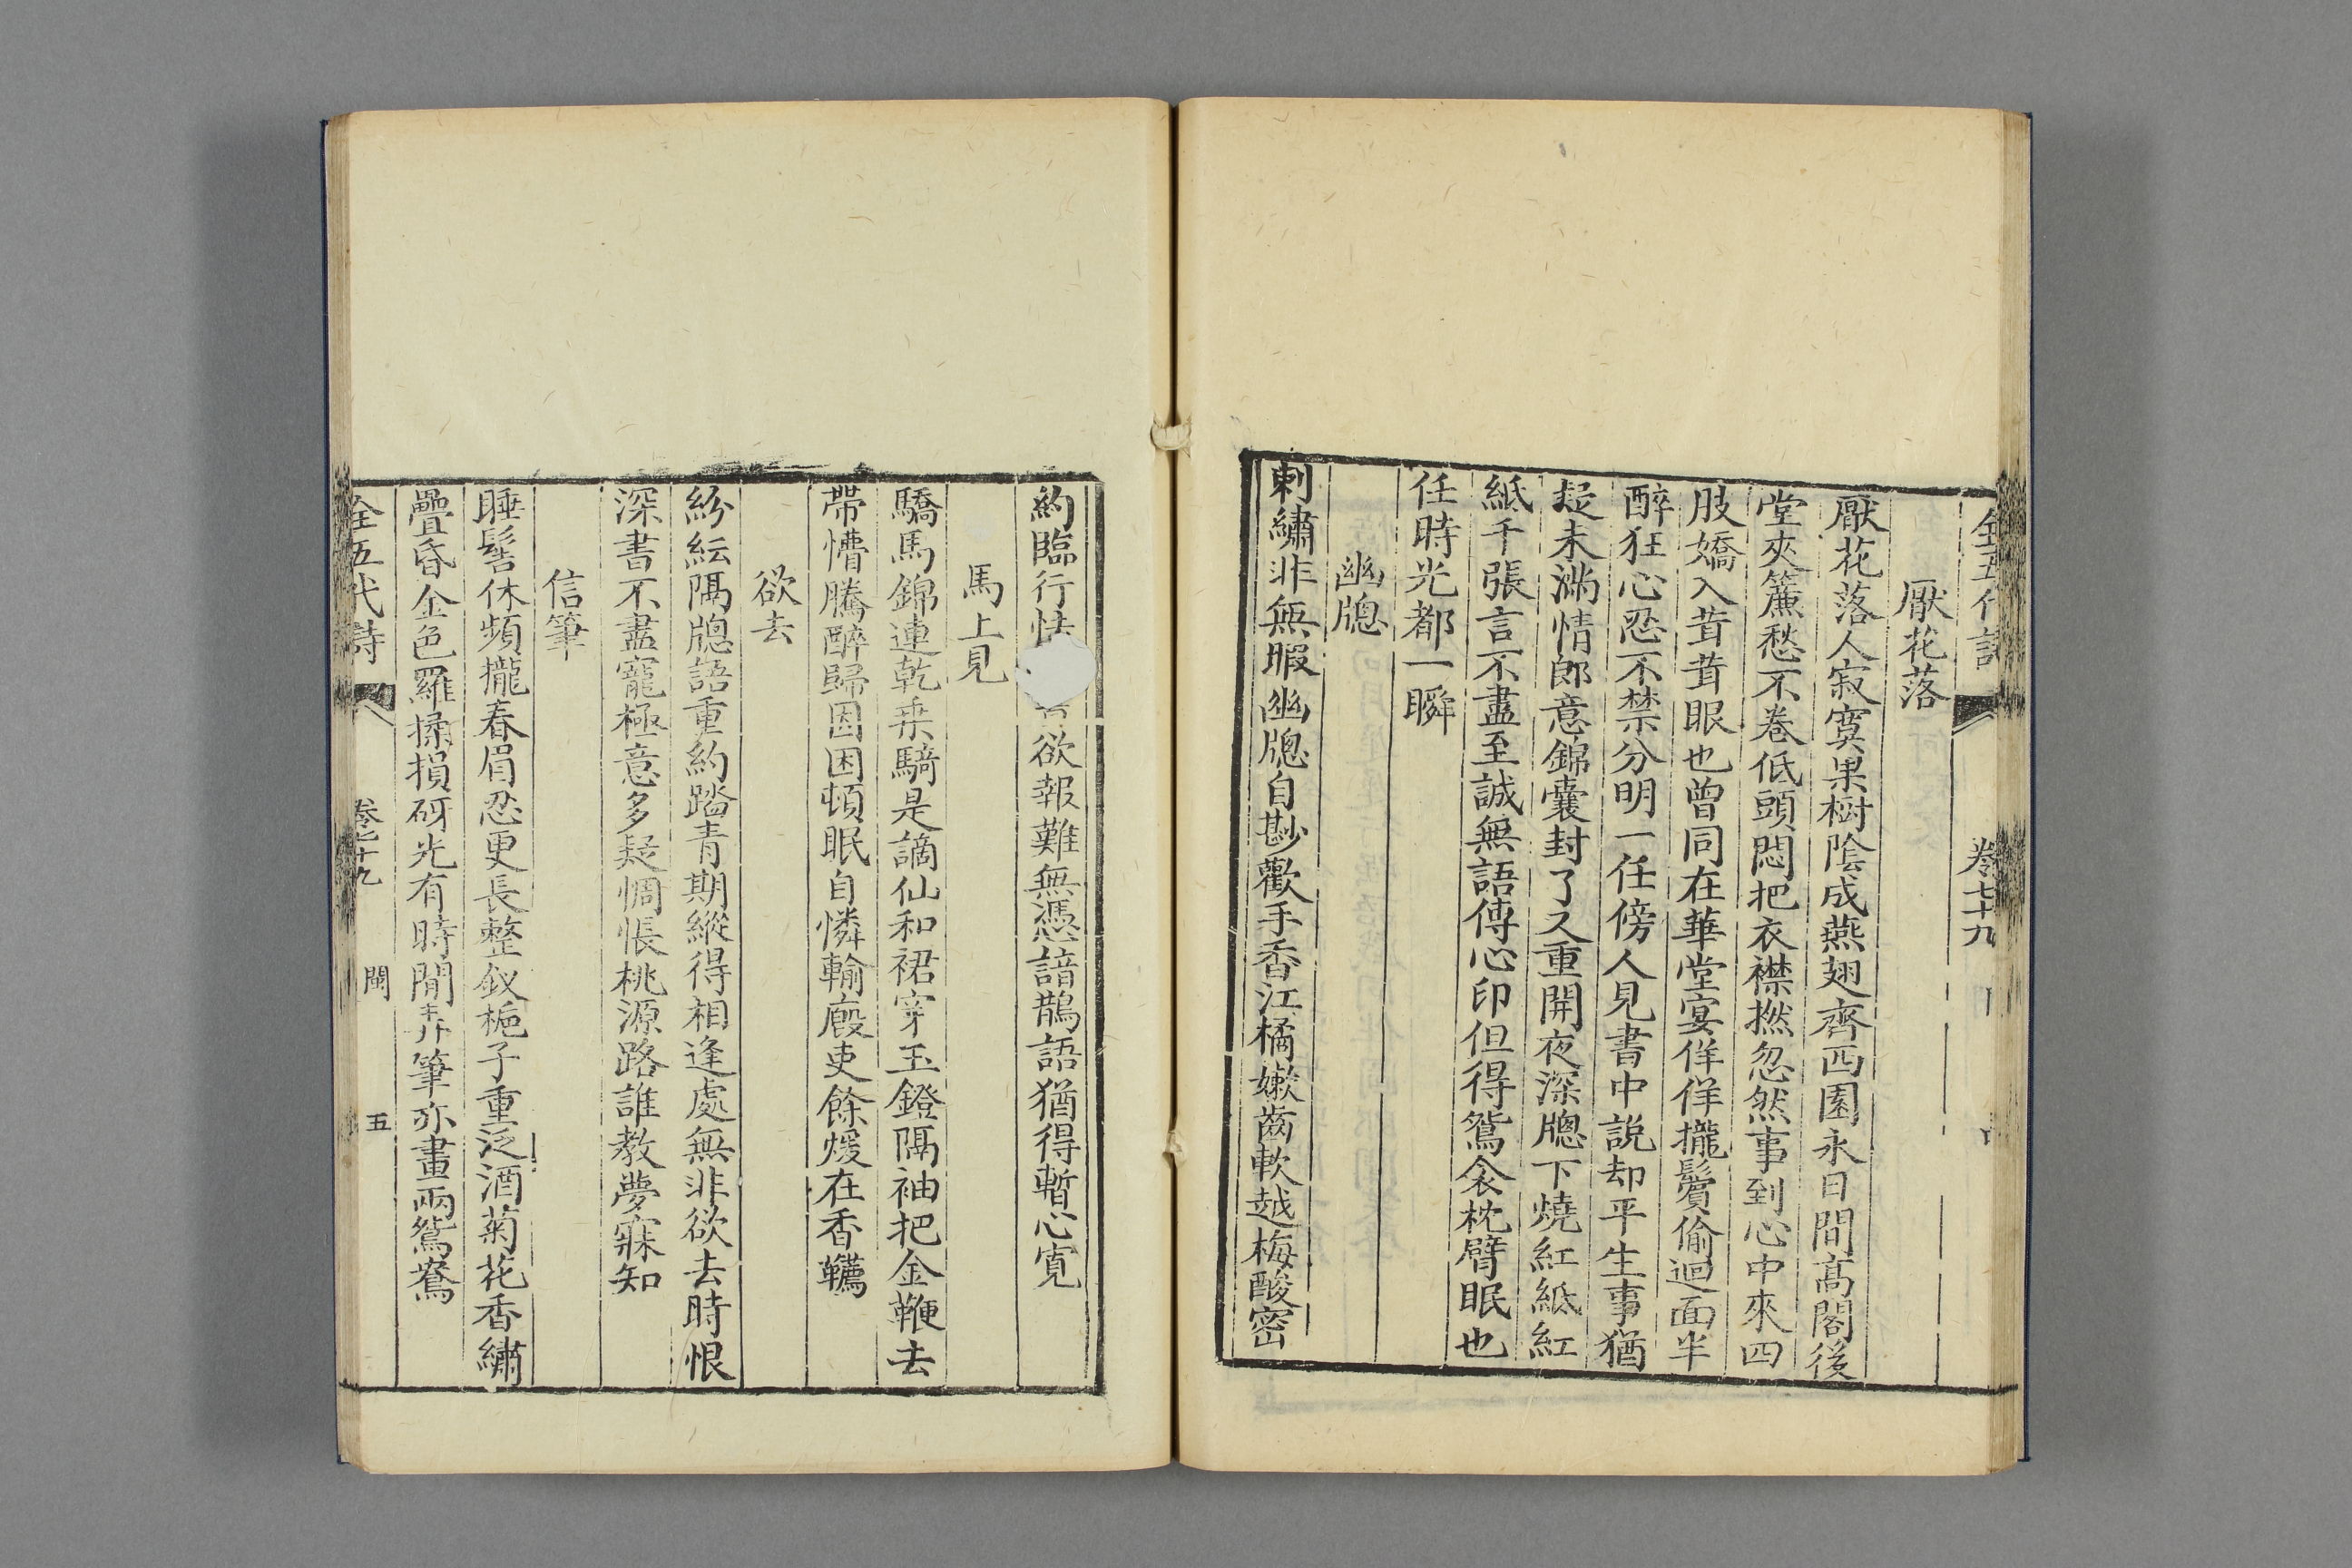 全五代詩 卷七十九
厭花落
厭花落人寂寞果樹陰成燕翅齊西園永日間高閣後
堂夾簾愁不卷低頭悶把衣襟撚忽然事到心中來四
肢嬌入茸茸眼也曾同在華堂宴佯佯攏鬢偷迴面半
醉狂心忍不禁分明一任傍人見書中說却平生事猶
疑未滿情郎意錦囊封了又重開夜深牕下燒紅紙紅
紙千張言不盡至誠無語傳心印但得鴛衾枕臂眠也
任時光都一瞬
幽牕
刺繡非無暇幽牕自尠歡手香江橘嫩齒軟越梅酸密
約臨行怯欲報難無憑諳鵲語猶得暫心寬
馬上見
驕馬錦連乾乗騎是謫仙和裙穿玉鐙隔袖把金鞭去
帶懵騰醉歸因困頓眠自憐輸廄吏餘煖在香韉
欲去
紛紜隔牕語重約踏青期縱得相逢處無非欲去時恨
深書不盡寵極意多疑惆悵桃源路誰教夢寐知
信筆
睡髻休頻攏春眉忍更長整釵梔子重泛酒菊花香繡
疊昏金色羅揉損砑光有時閒弄筆亦畫兩鴛鴦
全五代詩 卷七十九 閩 五